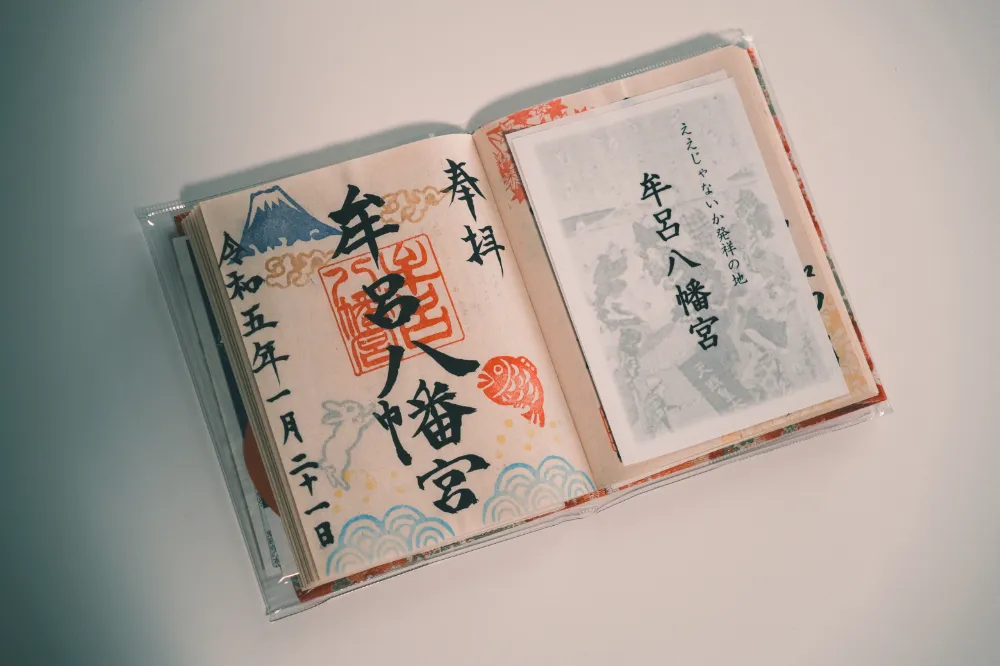 奉拝
牟呂八幡宮
牟呂
八幡宮
令和五年一月二十一日
ええじゃないか発祥の地
牟呂八幡宮